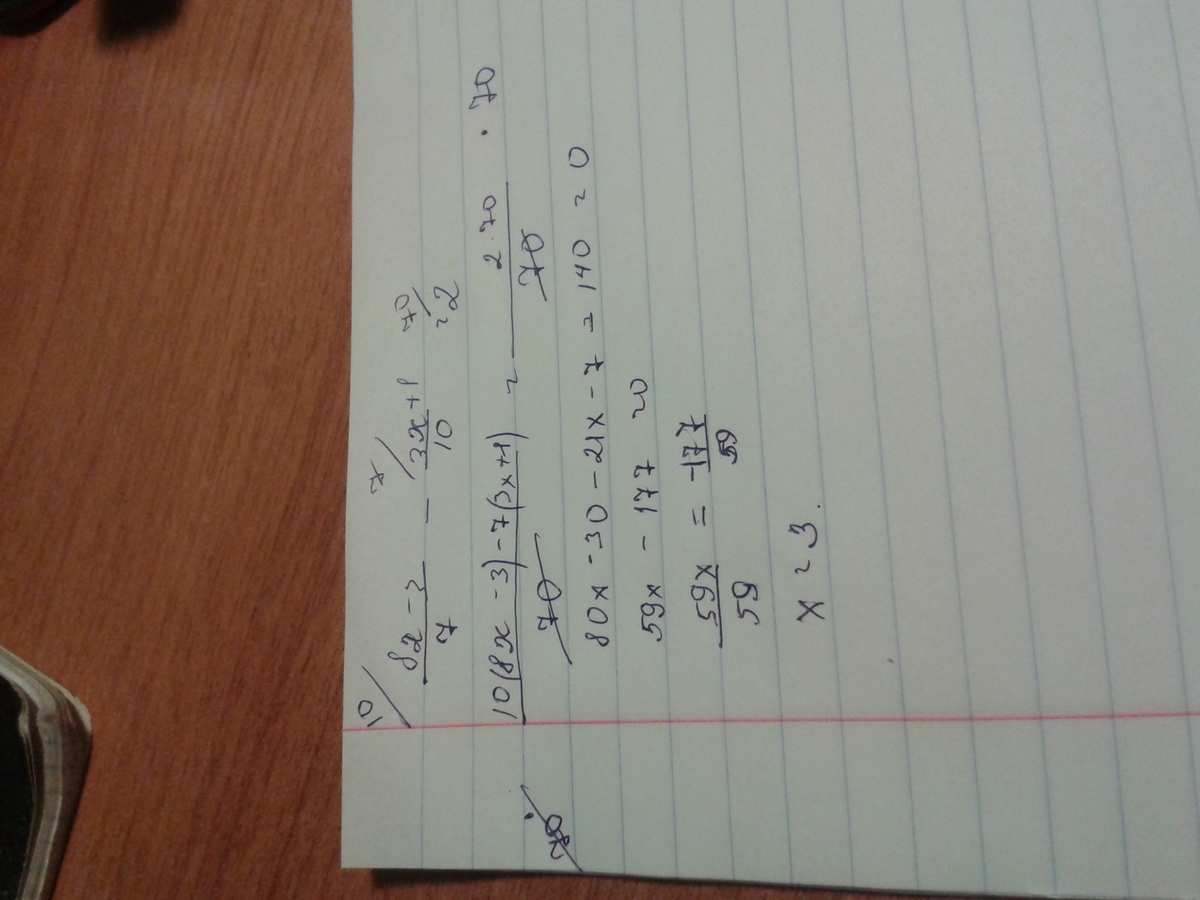 10/ 8x-3/7 - 7/ 3x+1/10 70/ =2
·70 10(8x-3)-7(3x+1)/70 = 2·70/70 · 70
80x-30-21x-7=140=0
59x-177=0
59x/59 = -177/59
x=3.